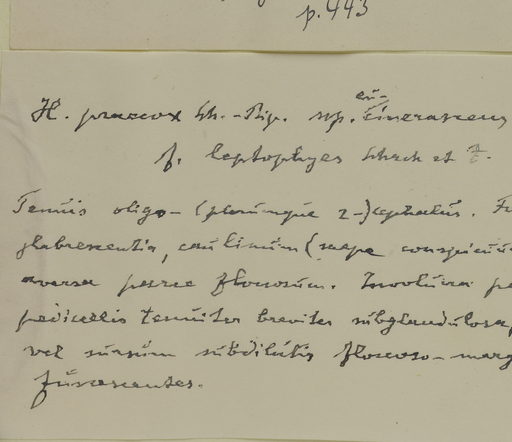 p. 443
eu-
H. praecox Sch.-Bip. ssp. cinerascens
f. leptophyes Schack et Z.
Tenuis oligo-(plerumque 2-)cephalus. Fo
glabrescentia, caulinum (saepe conspicuum
aversa parce floccosum. Involucra pe
pedicellis tenuiter breviter subglandulosa,
vel sursum subdilutis floccoso-marg
fuscescentes.